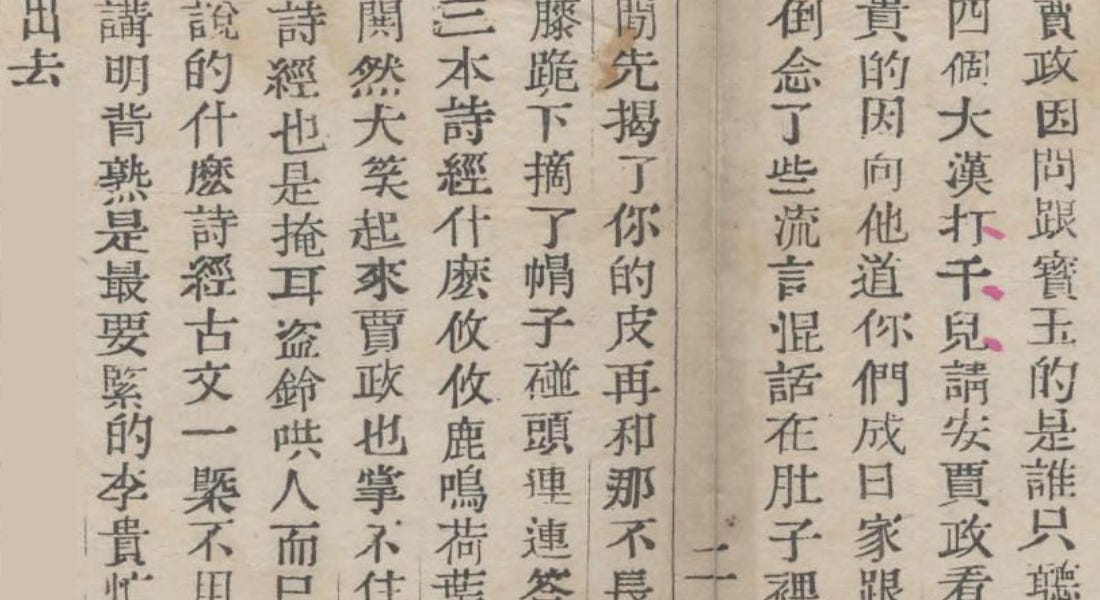 賈政因問跟寳玉的是誰只聽
四個大漢打千兒請安賈政看
貴的因向他道你們成日家跟
倒念了些流言混話在肚子裡
二
間先揭了你的皮再和那不長
膝跪下摘了帽子碰頭連連答
三本詩經什麽攸攸鹿鳴荷葉
閧然大笑起來賈政也掌不住
詩經也是掩耳盗鈴哄人而已
說的什麽詩經古文一槩不用
講明背熟是最要緊的李貴忙
出去